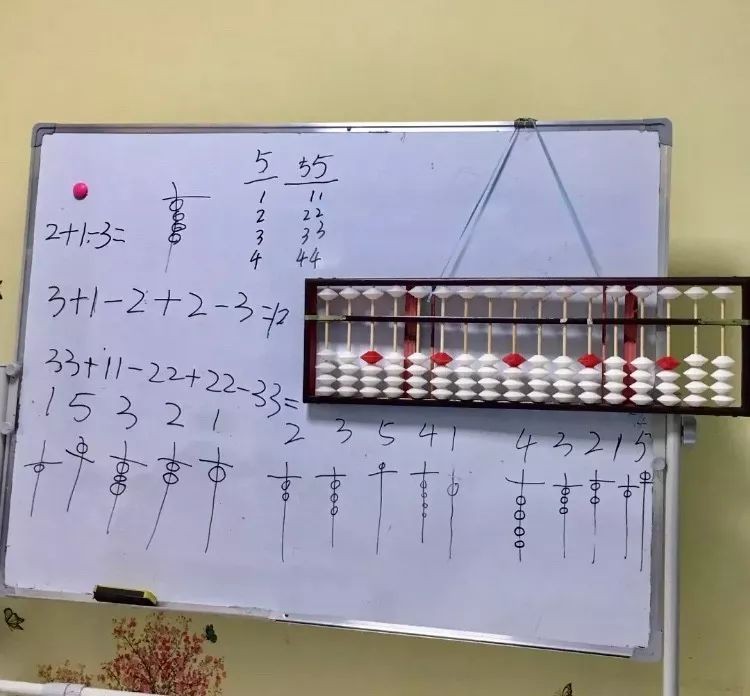 5 55
1 11
2 22
3 33
4 44
2+1-3=
3+1-2+2-3=
33+11-22+22-33=
1 5 3 2 1
2 3 5 4 1
4 3 2 1 5